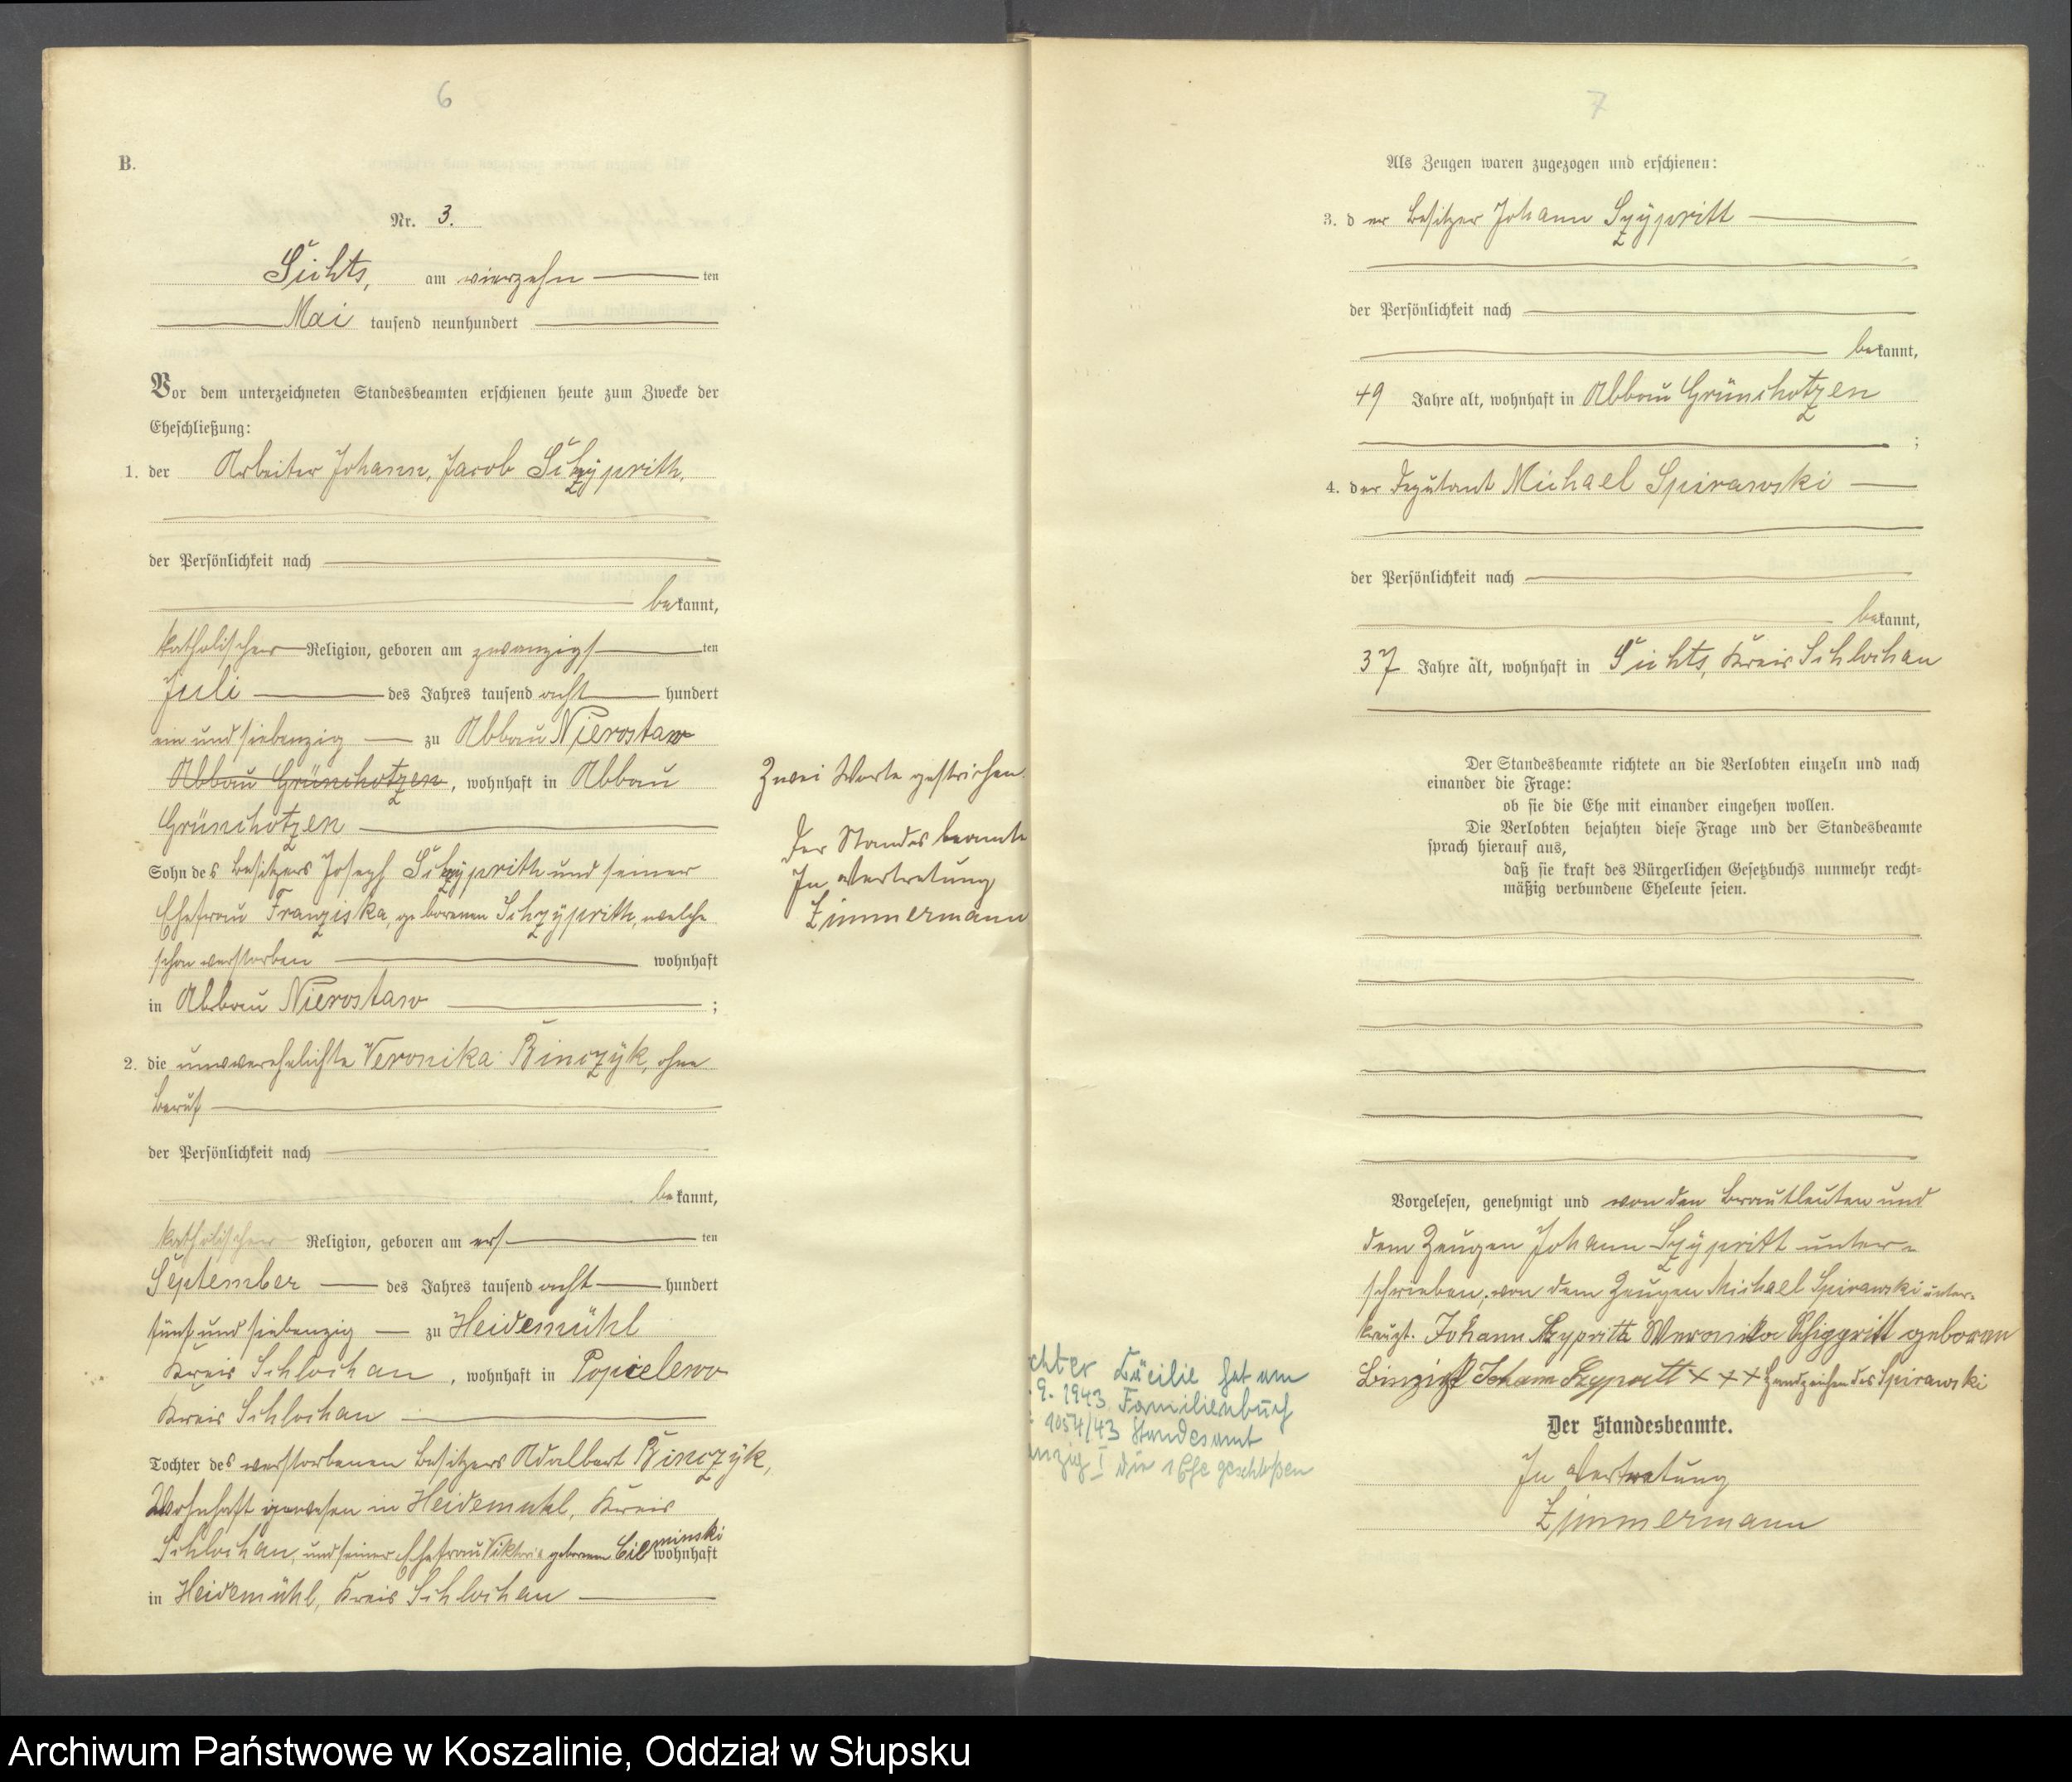 6
B.
Nr. 3.
Sichts, am vierzehn ten
Mai tausend neunhundert
Vor dem unterzeichneten Standesbeamten erschienen heute zum Zwecke der
Eheschließung:
1. der Arbeiter Johann, Jacob Schzÿprith,
der Persönlichkeit nach
bekannt,
katholischer Religion, geboren am zwanzigs ten
Juli des Jahres tausend acht hundert
ein und siebenzig zu Abbau Nierostaw
Abbau Grünchotzen, wohnhaft in Abbau
Grünchotzen
Sohn des Besitzers Joseph Schzÿprith und seiner
Ehefrau Franziska, geborenen Schzÿprith, welche
schon verstorben wohnhaft
in Abbau Nierostaw ;
2. die unverehelichte Veronika Binczÿk, ohne
Beruf
der Persönlichkeit nach
bekannt,
katholischer Religion, geboren am ers ten
September des Jahres tausend acht hundert
fünf und siebenzig zu Heidemühl
Kreis Schlochau, wohnhaft in Popielewo
Kreis Schlochau
Tochter des verstorbenen Besitzers Adalbert Binczÿk,
Wohnhaft gewesen in Heidemuhl, Kreis
Schlochau, und seiner Ehefrau Viktoria geborenen Cieminski
wohnhaft
in Heidemühl, Kreis Schlochau
Zwei Worte gestrichen.
Der Standesbeamte
In Vertretung
Zimmermann
7
Als Zeugen waren zugezogen und erschienen:
3. der Besitzer Johann Szÿpritt
der Persönlichkeit nach
bekannt,
49 Jahre alt, wohnhaft in Abbau Grünchotzen
;
4. der Deputant Michael Spirawski
der Persönlichkeit nach
bekannt,
37 Jahre alt, wohnhaft in Sichts, Kreis Schlochau
Der Standesbeamte richtete an die Verlobten einzeln und nach
einander die Frage:
ob sie die Ehe mit einander eingehen wollen.
Die Verlobten bejahten diese Frage und der Standesbeamte
sprach hierauf aus,
daß sie kraft des Bürgerlichen Gesetzbuchs nunmehr recht-
mäßig verbundene Eheleute seien.
Vorgelesen, genehmigt und von den Brautleuten und
dem Zeugen Johann Szÿpritt unter-
schrieben, von dem Zeugen Michael Spirawski unter-
kreuzt. Johann Szypritt Weronika geboren
Johann Szypritt + + + Handzeichen des Spirawski
Der Standesbeamte.
In Vertretung
Zimmermann
chter Cäcilie hat am
.9.1943 Familienbuch
1054/43 Standesamt
anzig I die 1 Ehe geschloßen
Archiwum Państwowe w Koszalinie, Oddział w Słupsku